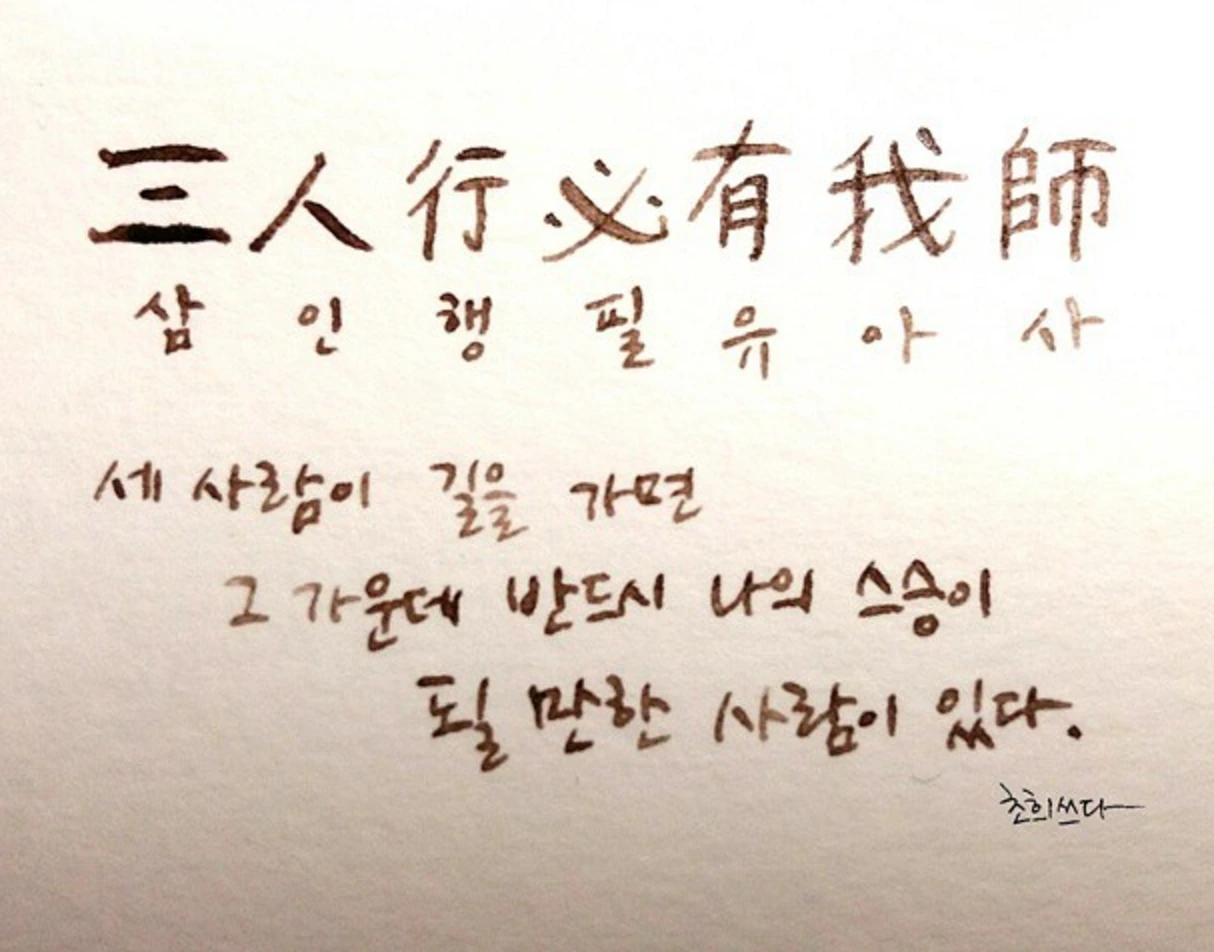 三人行必有我師
삼 인 행 필 유 아 사
세 사람이 길을 가면
그 가운데 반드시 나의 스승이
될 만한 사람이 있다.
초희쓰다